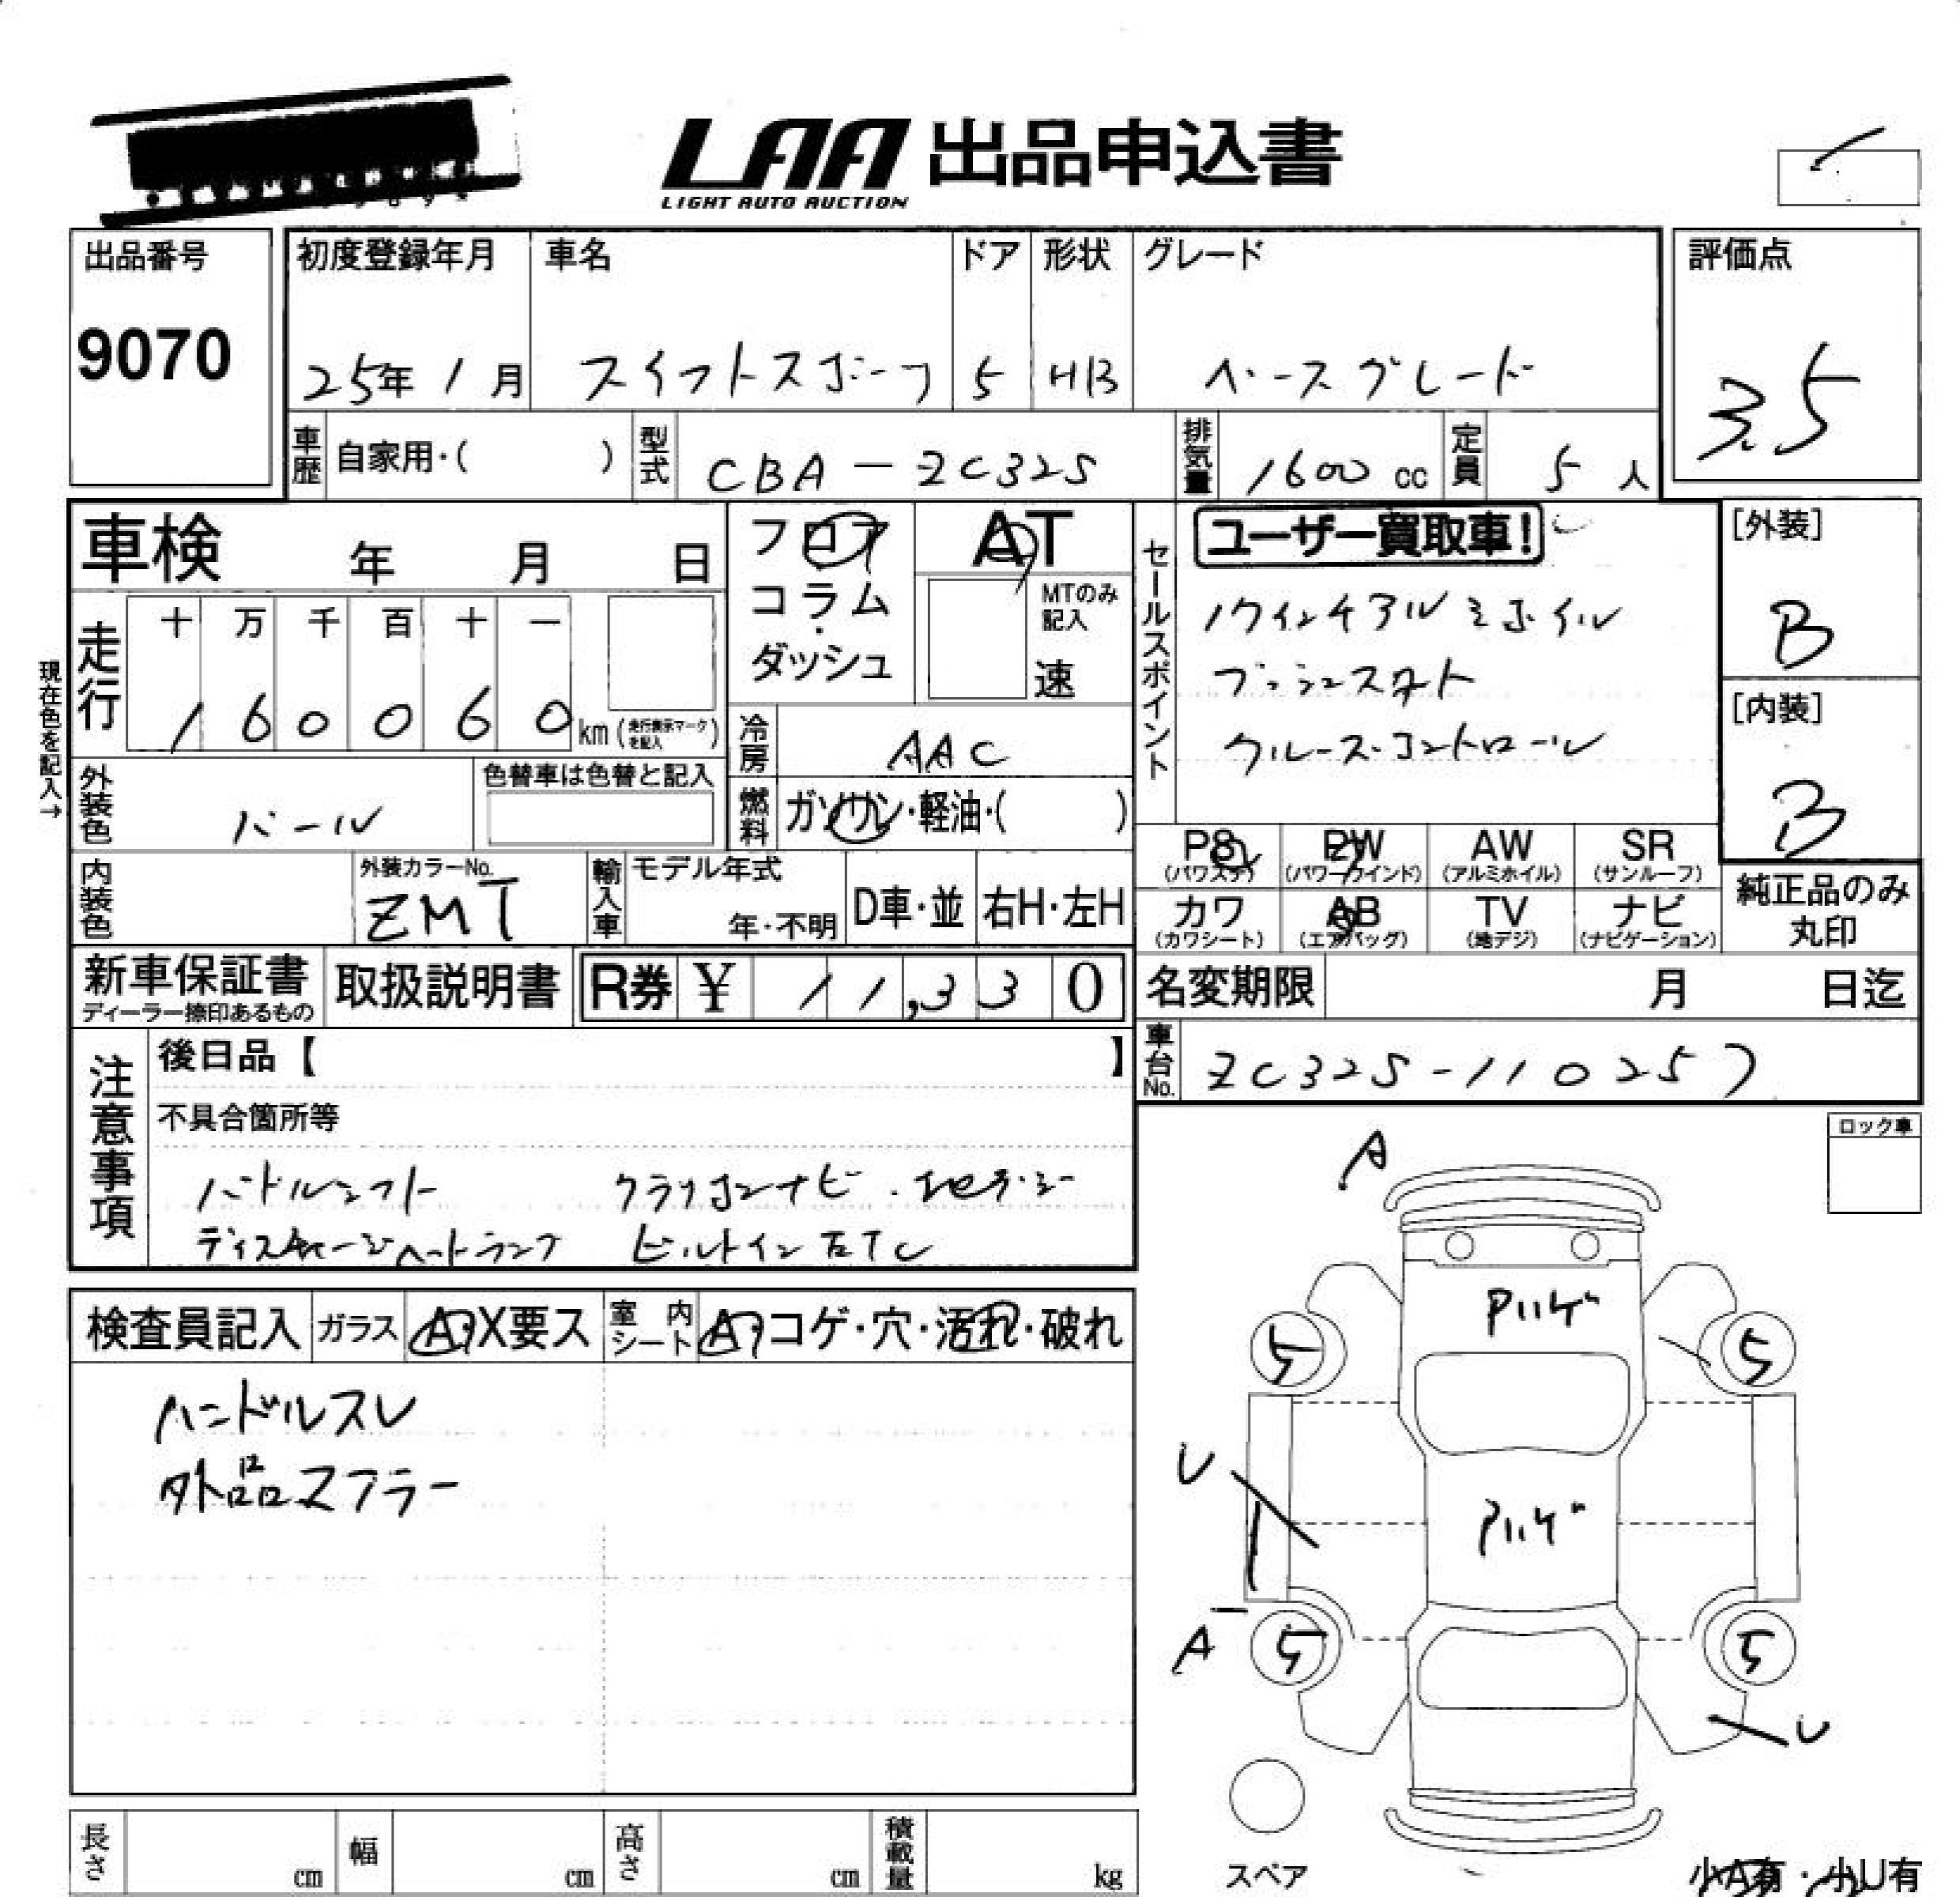 LAA 出品申込書
LIGHT AUTO AUCTION
出品番号
9070
初度登録年月 車名 ドア 形状 グレード
25年 1月 スイフトスポーツ 5 HB ベースグレード
評価点
3.5
車歴 自家用・( ) 型式 CBA-ZC32S 排気量 1600 cc 定員 5 人
車検 年 月 日
フロア
コラム・
ダッシュ
AT
MTのみ記入
速
セールスポイント
ユーザー買取車!
17インチアルミホイル
プッシュスタート
クルーズ・コントロール
[外装]
B
[内装]
B
現在色を記入→
走行 十 万 千 百 十 一
1 6 0 0 6 0 km (走行表示マークを記入)
冷房 AAC
燃料 ガソリン・軽油・( )
外装色 パール
色替車は色替と記入
内装色
外装カラーNo.
ZMT
輸入車 モデル年式
年・不明 D車・並 右H・左H
PS (パワステ) PW (パワーウインド) AW (アルミホイル) SR (サンルーフ)
カワ (カワシート) AB (エアバッグ) TV (地デジ) ナビ (ナビゲーション)
純正品のみ
丸印
新車保証書
ディーラー捺印あるもの
取扱説明書
R券 ¥ 11,330
名変期限 月 日迄
車台No. ZC32S-110257
注意事項
後日品【 】
不具合箇所等
ハンドルシフト クラリオンナビ・地デジ
ディスチャージヘッドランプ ビルトインETC
検査員記入 ガラス A・X要ス 室内シート A・コゲ・穴・汚れ・破れ
ハンドルスレ
外品マフラー
ロック車
A
Aハゲ
5 5
U
Aハゲ
A 5 5
U
スペア
小A有・小U有
長さ cm 幅 cm 高さ cm 積載量 kg